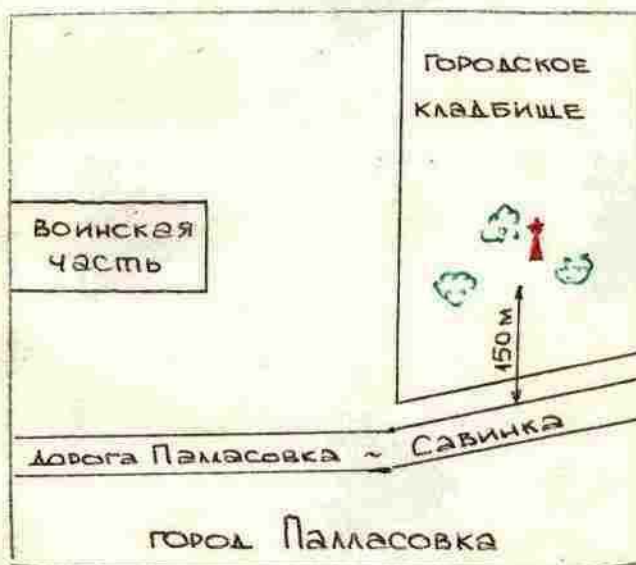 ГОРОДСКОЕ
КЛАДБИЩЕ
ВОИНСКАЯ
ЧАСТЬ
150 м
ДОРОГА ПАЛЛАСОВКА ~ САВИНКА
ГОРОД ПАЛЛАСОВКА